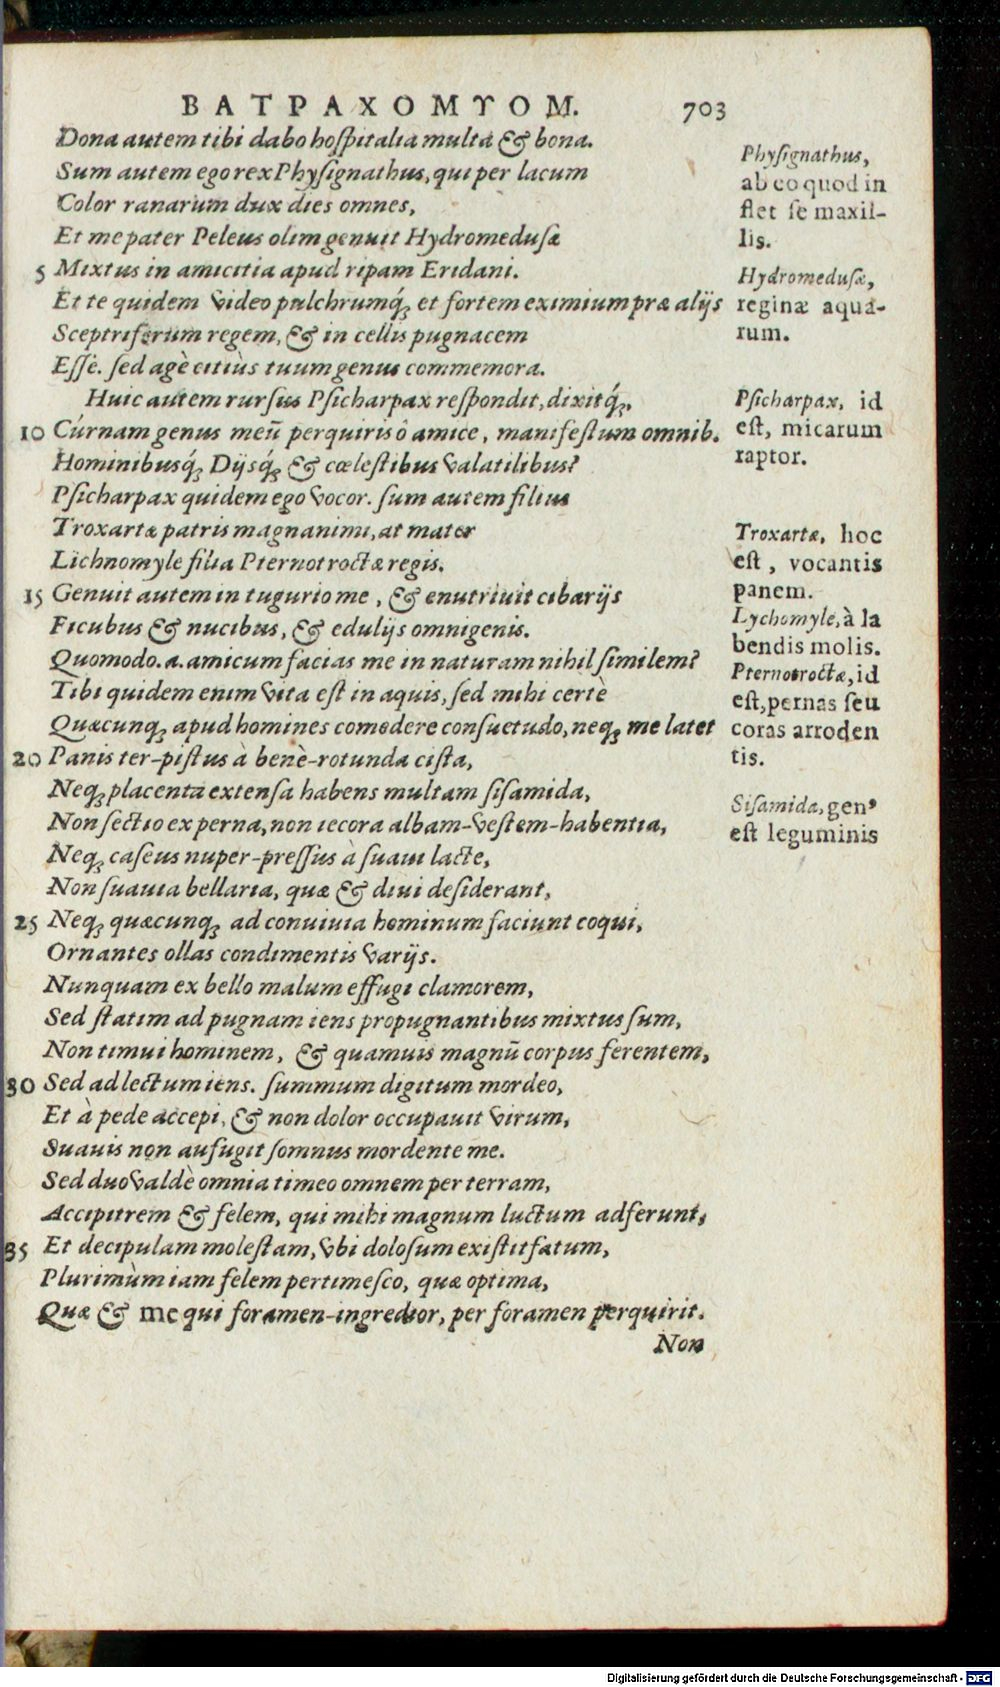 ΒΑΤΡΑΧΟΜΥΟΜ. 703
Dona autem tibi dabo hoſpitalia multa & bona.
Sum autem ego rex Phyſignathus, qui per lacum
Color ranarum dux dies omnes,
Et me pater Peleus olim genuit Hydromeduſæ
5 Mixtus in amicitia apud ripam Eridani.
Et te quidem video pulchrumq́; et fortem eximium præ alijs
Sceptriferum regem, & in cellis pugnacem
Eſſe. ſed agè citiùs tuum genus commemora.
Huic autem rurſus Pſicharpax reſpondit, dixitq́;,
10 Curnam genus meũ perquiris ô amice, manifeſtum omnib.
Hominibusq́; Dijsq́; & cœleſtibus valatilibus?
Pſicharpax quidem ego vocor. ſum autem filius
Troxartæ patris magnanimi, at mater
Lichnomyle filia Pternotroctæ regis.
15 Genuit autem in tugurio me, & enutriuit cibarijs
Ficubus & nucibus, & edulijs omnigenis.
Quomodo.a.amicum facias me in naturam nihil ſimilem?
Tibi quidem enim vita eſt in aquis, ſed mihi certè
Quæcunq; apud homines comedere conſuetudo, neq; me latet
20 Panis ter-piſtus à benè-rotunda ciſta,
Neq; placenta extenſa habens multam ſiſamida,
Non ſectio ex perna, non iecora albam-veſtem-habentia,
Neq; caſeus nuper-preſſus à ſuaui lacte,
Non ſuauia bellaria, quæ & diui deſiderant,
25 Neq; quæcunq; ad conuiuia hominum faciunt coqui,
Ornantes ollas condimentis varijs.
Nunquam ex bello malum effugi clamorem,
Sed ſtatim ad pugnam iens propugnantibus mixtus ſum,
Non timui hominem, & quamuis magnũ corpus ferentem,
30 Sed ad lectum iens. ſummum digitum mordeo,
Et à pede accepi, & non dolor occupauit virum,
Suauis non aufugit ſomnus mordente me.
Sed duo valdè omnia timeo omnem per terram,
Accipitrem & felem, qui mihi magnum luctum adferunt,
35 Et decipulam moleſtam, vbi doloſum exiſtit fatum,
Plurimùm iam felem pertimeſco, quæ optima,
Quæ & me qui foramen-ingredior, per foramen perquirit.
Non
Phyſignathus,
ab eo quod in
flet ſe maxil-
lis.
Hydromeduſæ,
reginæ aqua-
rum.
Pſicharpax, id
eſt, micarum
raptor.
Troxartæ, hoc
eſt, vocantis
panem.
Lychomyle, à la
bendis molis.
Pternotroctæ, id
eſt, pernas ſeu
coras arroden
tis.
Siſamida, gen⁹
eſt leguminis
Digitalisierung gefördert durch die Deutsche Forschungsgemeinschaft - DFG